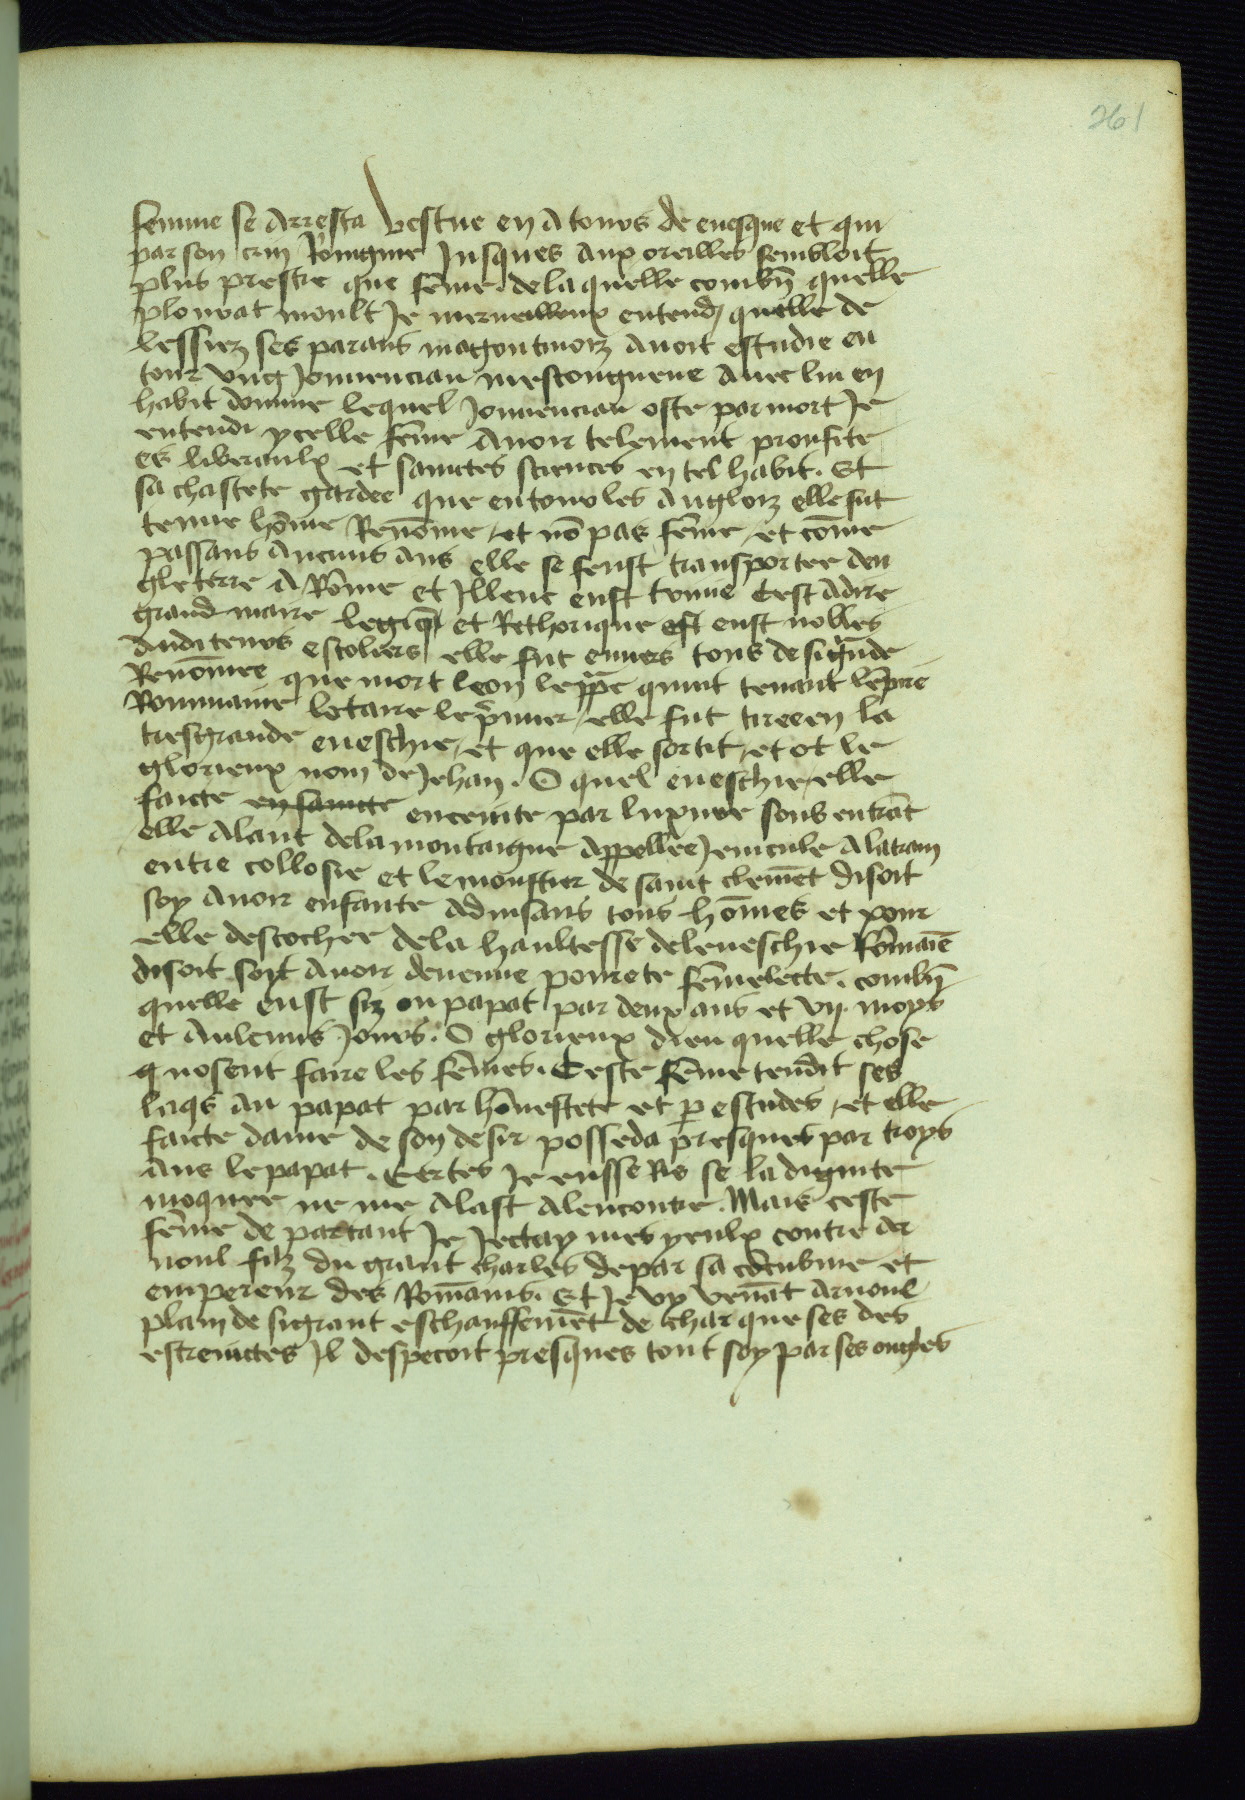 261
femme se arresta vestue en atours de euesque et qui
par son crin Rongne Jusques aux oreilles sembloit
plus prestre que fême. de laquelle combn̄ quelle
plourat moult Je merueilleux entendz quelle de
lessiez ses parans magontinoiz auoit estudie en
tour ung Jouuencian mescongneue auec lui en
habit domme lequel Jouuencian oste par mort Je
entendi ycelle fême auoir telement proufite
es liberaulx et sainctes sciences en tel habit. Et
sa chastete gardee que entour les angloiz elle fut
tenue hôme Renôme, et nô pas fême, et côme
passans aucuns ans elle se feust transportee den
gleterre a Rôme et Illenc eust tenue Cest adire
grand maire logiq̄ et Rethorique eust nobles
auditeurs escoliers elle fut enuers tous de si grāde
Renômee que mort leon le pp̄e quint tenant lēpire
Rommaine lotaire le p̄mier, elle fut tiree en la
tresgrande eueschie, et que elle sortit, et ot le
glorieux nom de Jehan. O quel eueschie, elle
faicte en saincte enceinte par luxure soub entrāt
elle alant dela montaigne appellee Jenicule a latram
entre collosse et le moustier de saint clemēt disoit
soy auoir enfante aduisans tous hômes et pour
elle descochee dela haultesse deleueschie Rômaīe
disoit soyt auoir deuenue pourete fêmelecte. combn̄
quelle eust siz ou papat par deux ans et vij. moys
et aulcuns Jours. O glorieux dieu quelle chose
q nosent faire les fêmes. Ceste fême tendit ses
laqs au papat par hônestete et p estudes, et elle
faicte dame de son desir posseda presques par troys
ans le papat. Certes Je eusse Ris se la dignite
moquee ne me alast alencontre. Mais ceste
fême de partant Je Jectay mes yeulx contre ar
noul filz du grant charles depar sa côcubine et
empereur des Rômains. Et Je vy venāt arnoul
plain de sigrant eschauffemēt de char que ses des
estreinctes Il despecoit presques tout soy par ses ongles